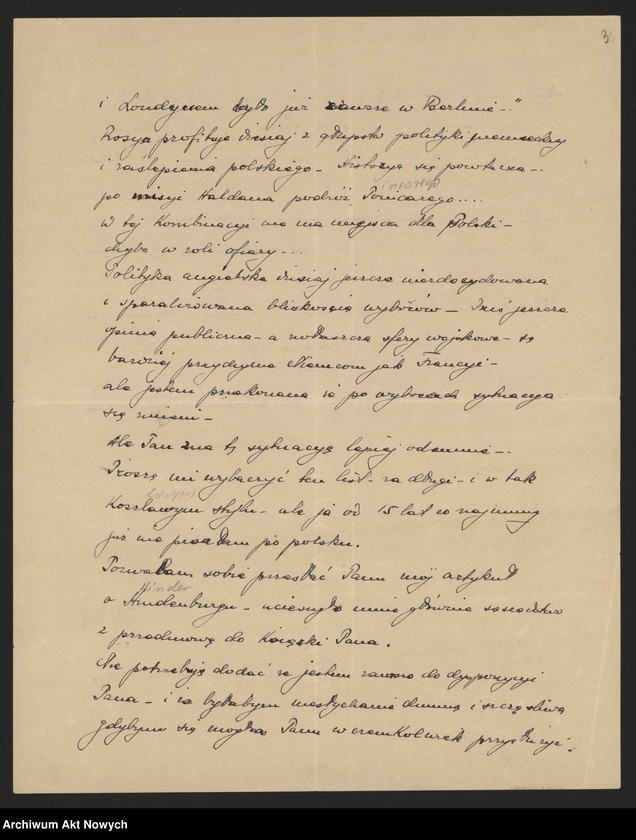 3
i Londynem było już zawsze w Berlinie –.."
Rosya profituje dzisiaj z głupstw polityki niemieckiej
i zaślepienia polskiego – Historya się powtarza –..
po misyi Haldana podróż Poincarego ....
w tej Kombinacyi nie ma miejsca dla Polski –
chyba w roli ofiary –..
Polityka angielska dzisiaj jeszcze niezdecydowana
i sparaliżowana bliskością wyborów – Dziś jeszcze
opinia publiczna – a zwłaszcza sfery wojskowe – są
bardziej przychylne Niemcom jak Francyi –
ale jestem przekonana że po wyborach sytuacya
się zmieni –
Ale Pan zna tę sytuacyę lepiej odemnie –..
Proszę mi wybaczyć ten list – za długi – i w tak
Koszlawym stylu – ale ja od 15 lat co najmniej
już nie pisałam po polsku.
Pozwalam sobie przesłać Panu mój artykuł
Hinden
o Hindenburgu – ucieszyło mnie głównie sąsiedztwo
z przedmową do Książki Pana.
Nie potrzebuję dodać że jestem zawsze do dyspozycyi
Pana – i że byłabym niesłychanie dumną i szczęśliwą
gdybym się mogła Panu w czemkolwiek przysłużyć.
Archiwum Akt Nowych